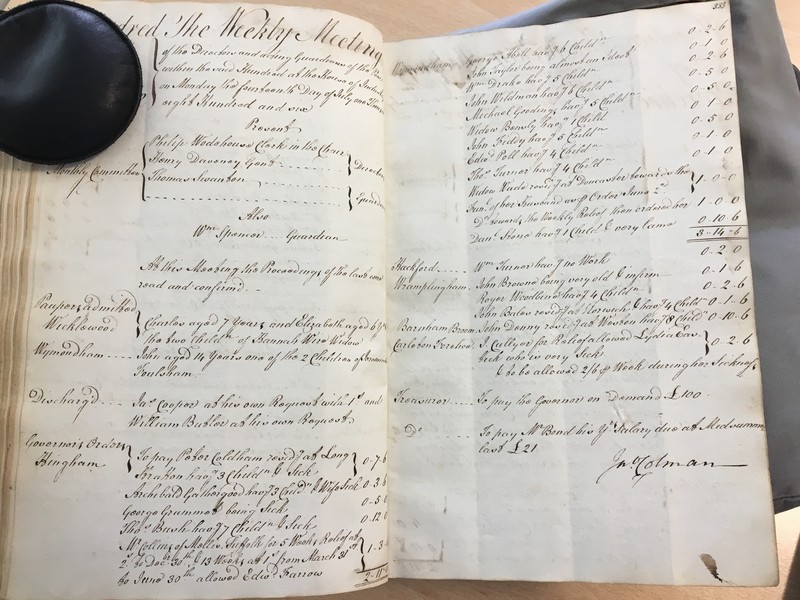 dred The Weekly Meeting
of the Directors and acting Guardians of the
within the said Hundred at the House of
on Monday the fourteenth Day of July one Thous
eight Hundred and six
Present
Philip Wodehouse Clerk in the Chair
Henry Gent
Thomas Swanton
Director
Monthly Committee
Guard
Also
Wm Spencer Guardian
At this Meeting the Proceedings of the last were
read and confirmed
Paupers admitted
Wicklewood
Charles aged 7 Years and Elizabeth aged 6 Ys
the two Childn of Hannah Wire Widow
Wymondham
John aged 14 Years one of the 2 Children of
Fulsham
Discharg'd
Cooper at his own Request with 1s and
William Butler at his own Request
Governors Orders
Hingham
To pay Peter Coldham resid'g at Long
Stratton hav'g 3 Childn & Sick
0-7-6
Archibald hav'g 3 Childn & Wife Sick 0-3-6
George being Sick 0-5-0
Thos Bush hav'g 7 Childn & Sick 0-12-0
Mr Collins of Suffolk for 5 Weeks Relief at
2s to Decr 30th & 13 Weeks at 1s from March 31
to June 30th allowed Edwd Farrow
1-3-
2-11-
333
Wymondham George Abell hav'g 6 Childn 0-2-6
John Taylor being almost an Ideot 0-1-0
Wm Drake hav'g 5 Childn 0-2-6
John Wildman hav'g 6 Childn 0-5-0
Michael Gooding hav'g 5 Childn 0-5-0
Widow hav'g 1 Child 0-1-0
John hav'g 5 Childn 0-5-0
Edwd Poll hav'g 4 Childn 0-1-0
Thos Turnor hav'g 4 Childn 0-1-0
Widow resid'g at Doncaster towards the
of her Husband as p Order June 2d
1-0-0
Do towards the Weekly Relief then ordered her 1-0-0
Danl hav'g 1 Child & very lame 0-10-6
3-14-6
Hackford Wm Turnor hav'g no Work 0-2-0
Wramplingham John Browne being very old & infirm 0-1-6
Roger hav'g 4 Childn 0-2-6
John Bales resid'g at Norwich & hav'g 4 Childn 0-1-6
Barnham Broom John Denny resid'g at hav'g 8 Childn 0-10-6
Carleton Forehoe J. Cullyer for Relief allowed Lydia
who is very Sick
0-2-6
& to be allowed 2/6 p Week during her Sickness
Treasurer To pay the Governor on Demand £100
Do To pay Mr Bond his Salary due at Midsumm
last £21
Jno Colman